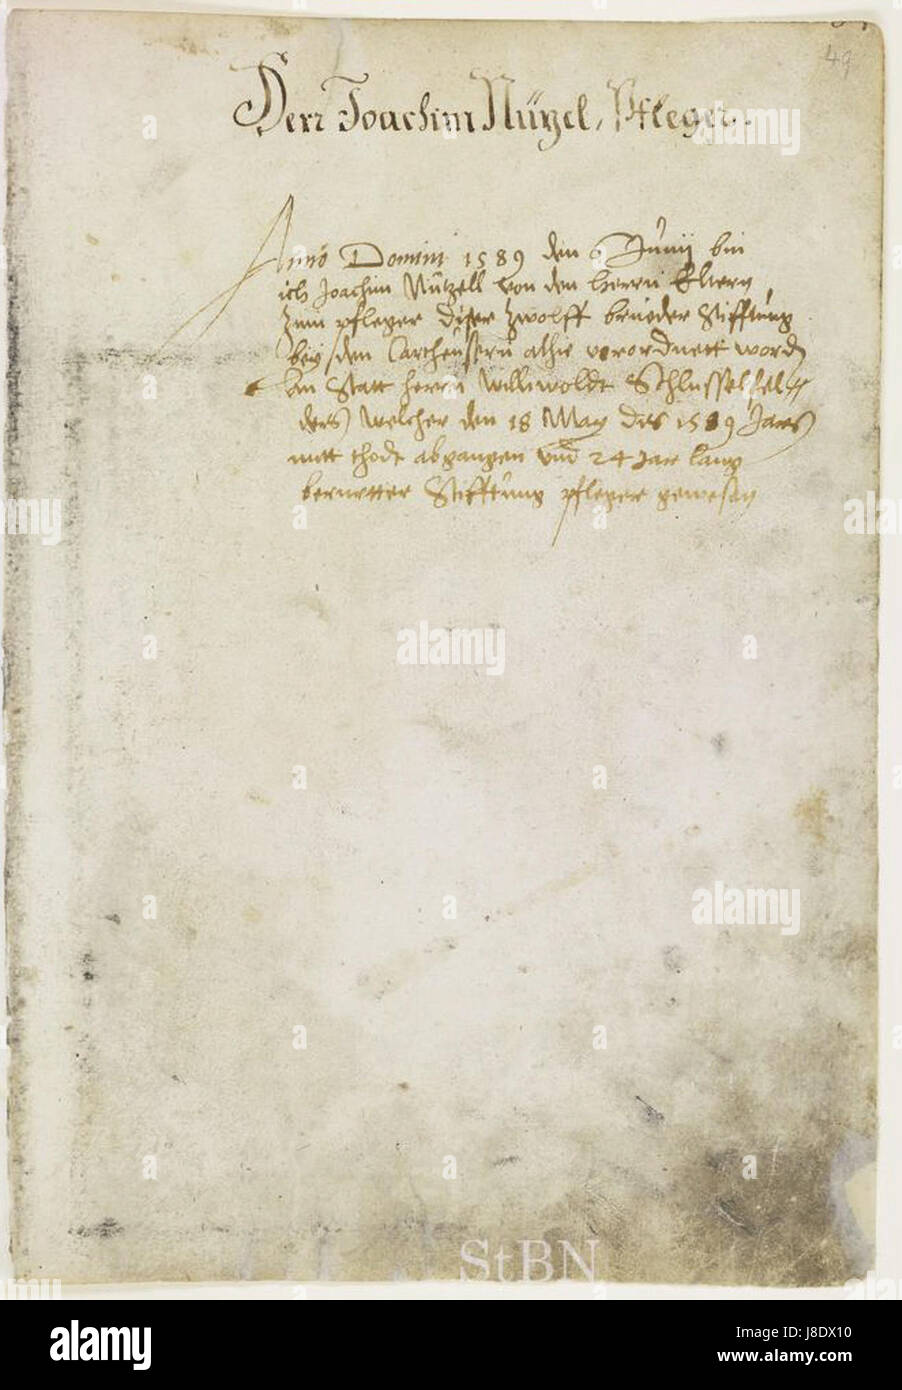 49
Herr Joachim Nützel, Pfleger.
Anno Domini 1589 den 6 Junij bin
ich Joachim Nützell von den Herrn Eltern
zum pfleger diser zwolff brueder Stifftung
bey den Cartheusern alhie verordnett word
An Statt herrn Willwoldt Schlusselfel=
ders welcher den 18 May des 1589 Jares
mitt thodt abgangen vnd 24 Jar lang
berurtter Stifftung pfleger gewesen
StBN
alamy
Image ID: J8DX10
www.alamy.com